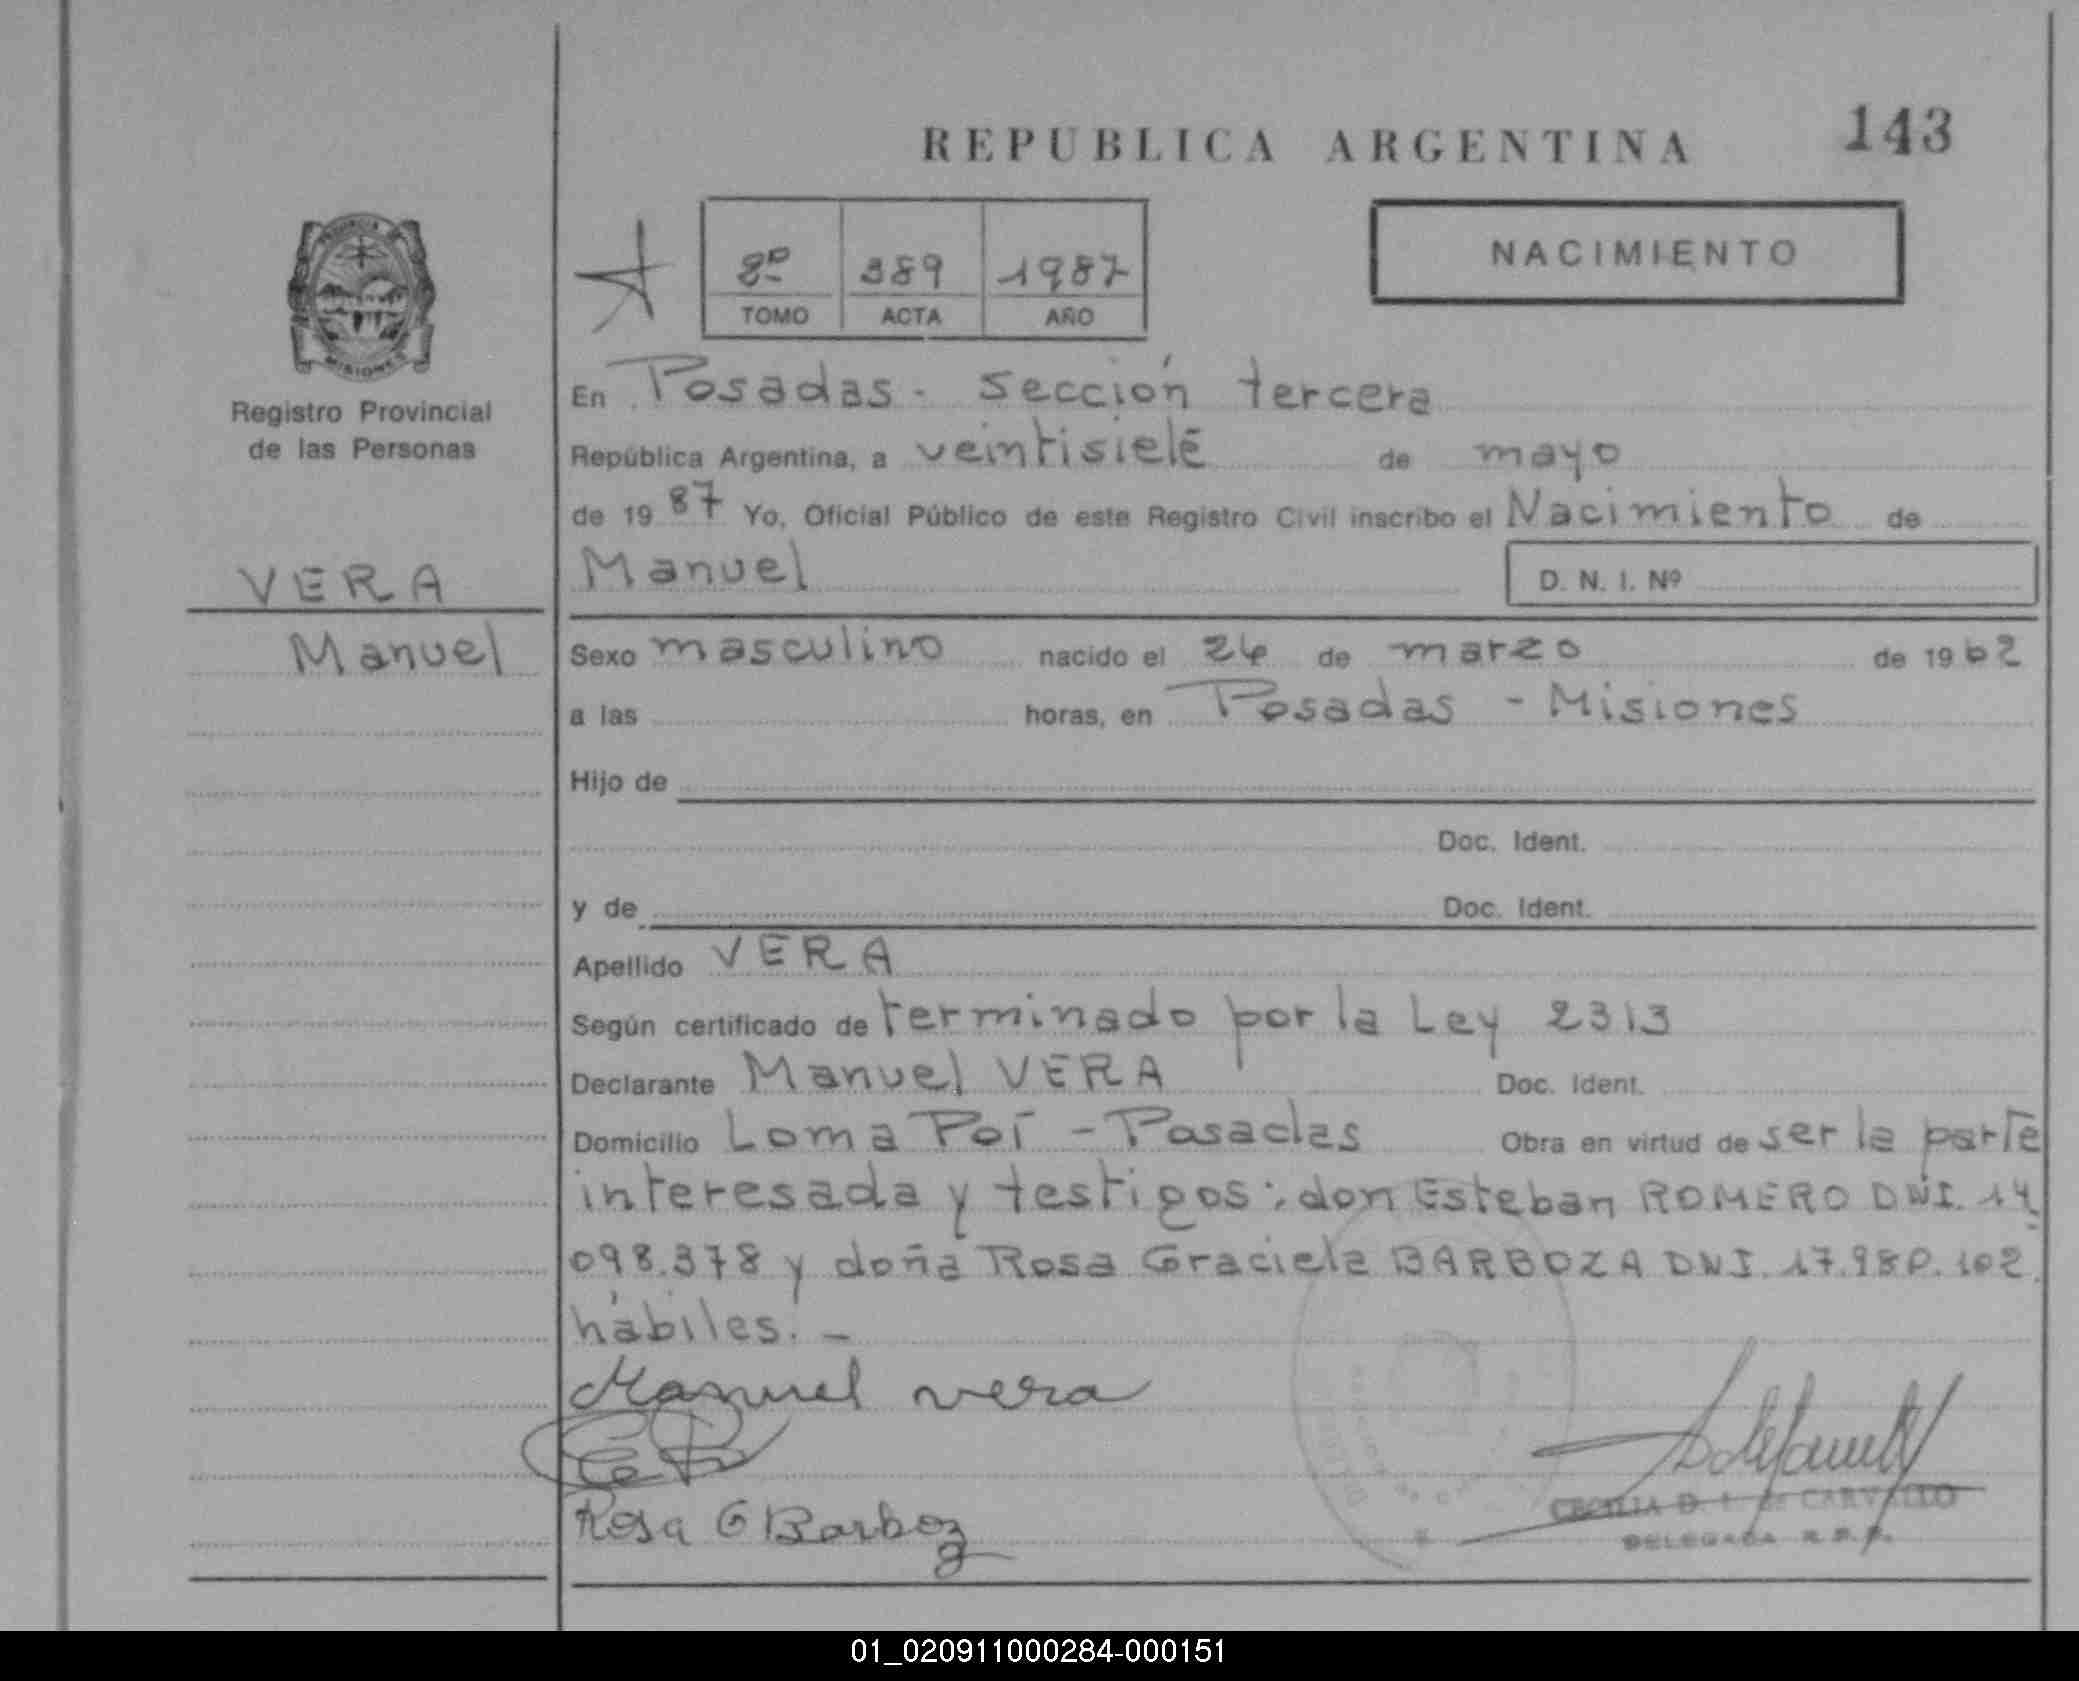 REPUBLICA ARGENTINA
143
8º 389 1987
TOMO ACTA AÑO
NACIMIENTO
PROVINCIA DE
MISIONES
Registro Provincial
de las Personas
VERA
Manuel
En Posadas - sección tercera
República Argentina, a veintisiete de mayo
de 1987 Yo, Oficial Público de este Registro Civil inscribo el Nacimiento de
Manuel D. N. I. Nº
Sexo masculino nacido el 26 de marzo de 1962
a las horas, en Posadas - Misiones
Hijo de
Doc. Ident.
y de Doc. Ident.
Apellido VERA
Según certificado de terminado por la Ley 2313
Declarante Manuel VERA Doc. Ident.
Domicilio Loma Poí - Posadas Obra en virtud de ser la parte
interesada y testigos: don Esteban ROMERO DNI. 14.
098.378 y doña Rosa Graciela BARBOZA DNI. 17.980.102.
hábiles. -
Manuel vera
Rosa G Barboza
CECILIA D. de CARVALLO
DELEGADA R.P.P.
01_020911000284-000151